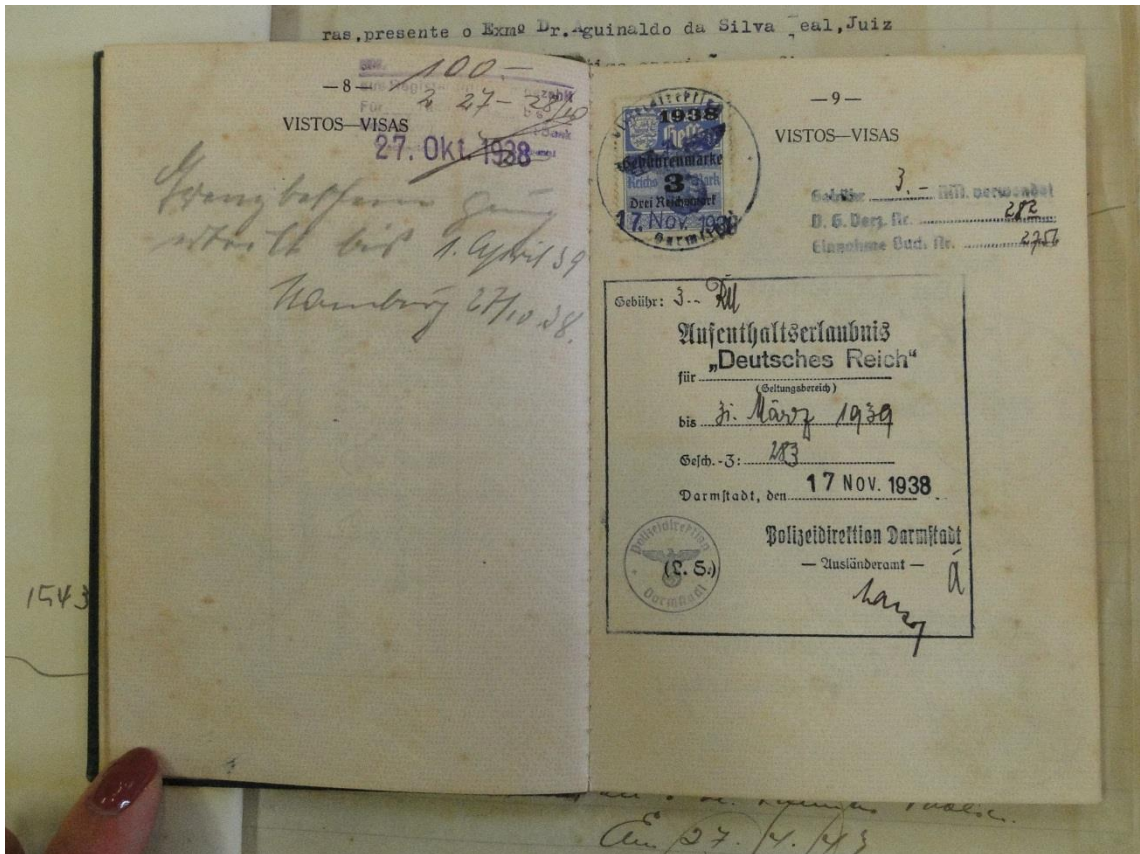 ras,presente o Exmº Dr.Aguinaldo da Silva eal,Juiz
—8—
100.—
aus
Für
27 — 28/10
Bank
VISTOS—VISAS
27. Okt. 1938
erteilt bis 1. April 39
Hamburg 27/10.38.
—9—
VISTOS—VISAS
1938
Hessen
Gebührenmarke
Reichs 3 Mark
Drei Reichsmark
17. Nov. 1938
Darmstadt
Gebühr 3.— RM. verwendet
D. G. Verz. Nr. 282
Einnahme Buch. Nr. 2756
Gebühr: 3.- RM
Aufenthaltserlaubnis
für „Deutsches Reich“
(Geltungsbereich)
bis 31. März 1939
Gesch.-Z: 283
Darmstadt, den 17 Nov. 1938
Polizeidirektion Darmstadt
— Ausländeramt —
Polizeidirektion
(L. S.)
Darmstadt
1543
27./4./43